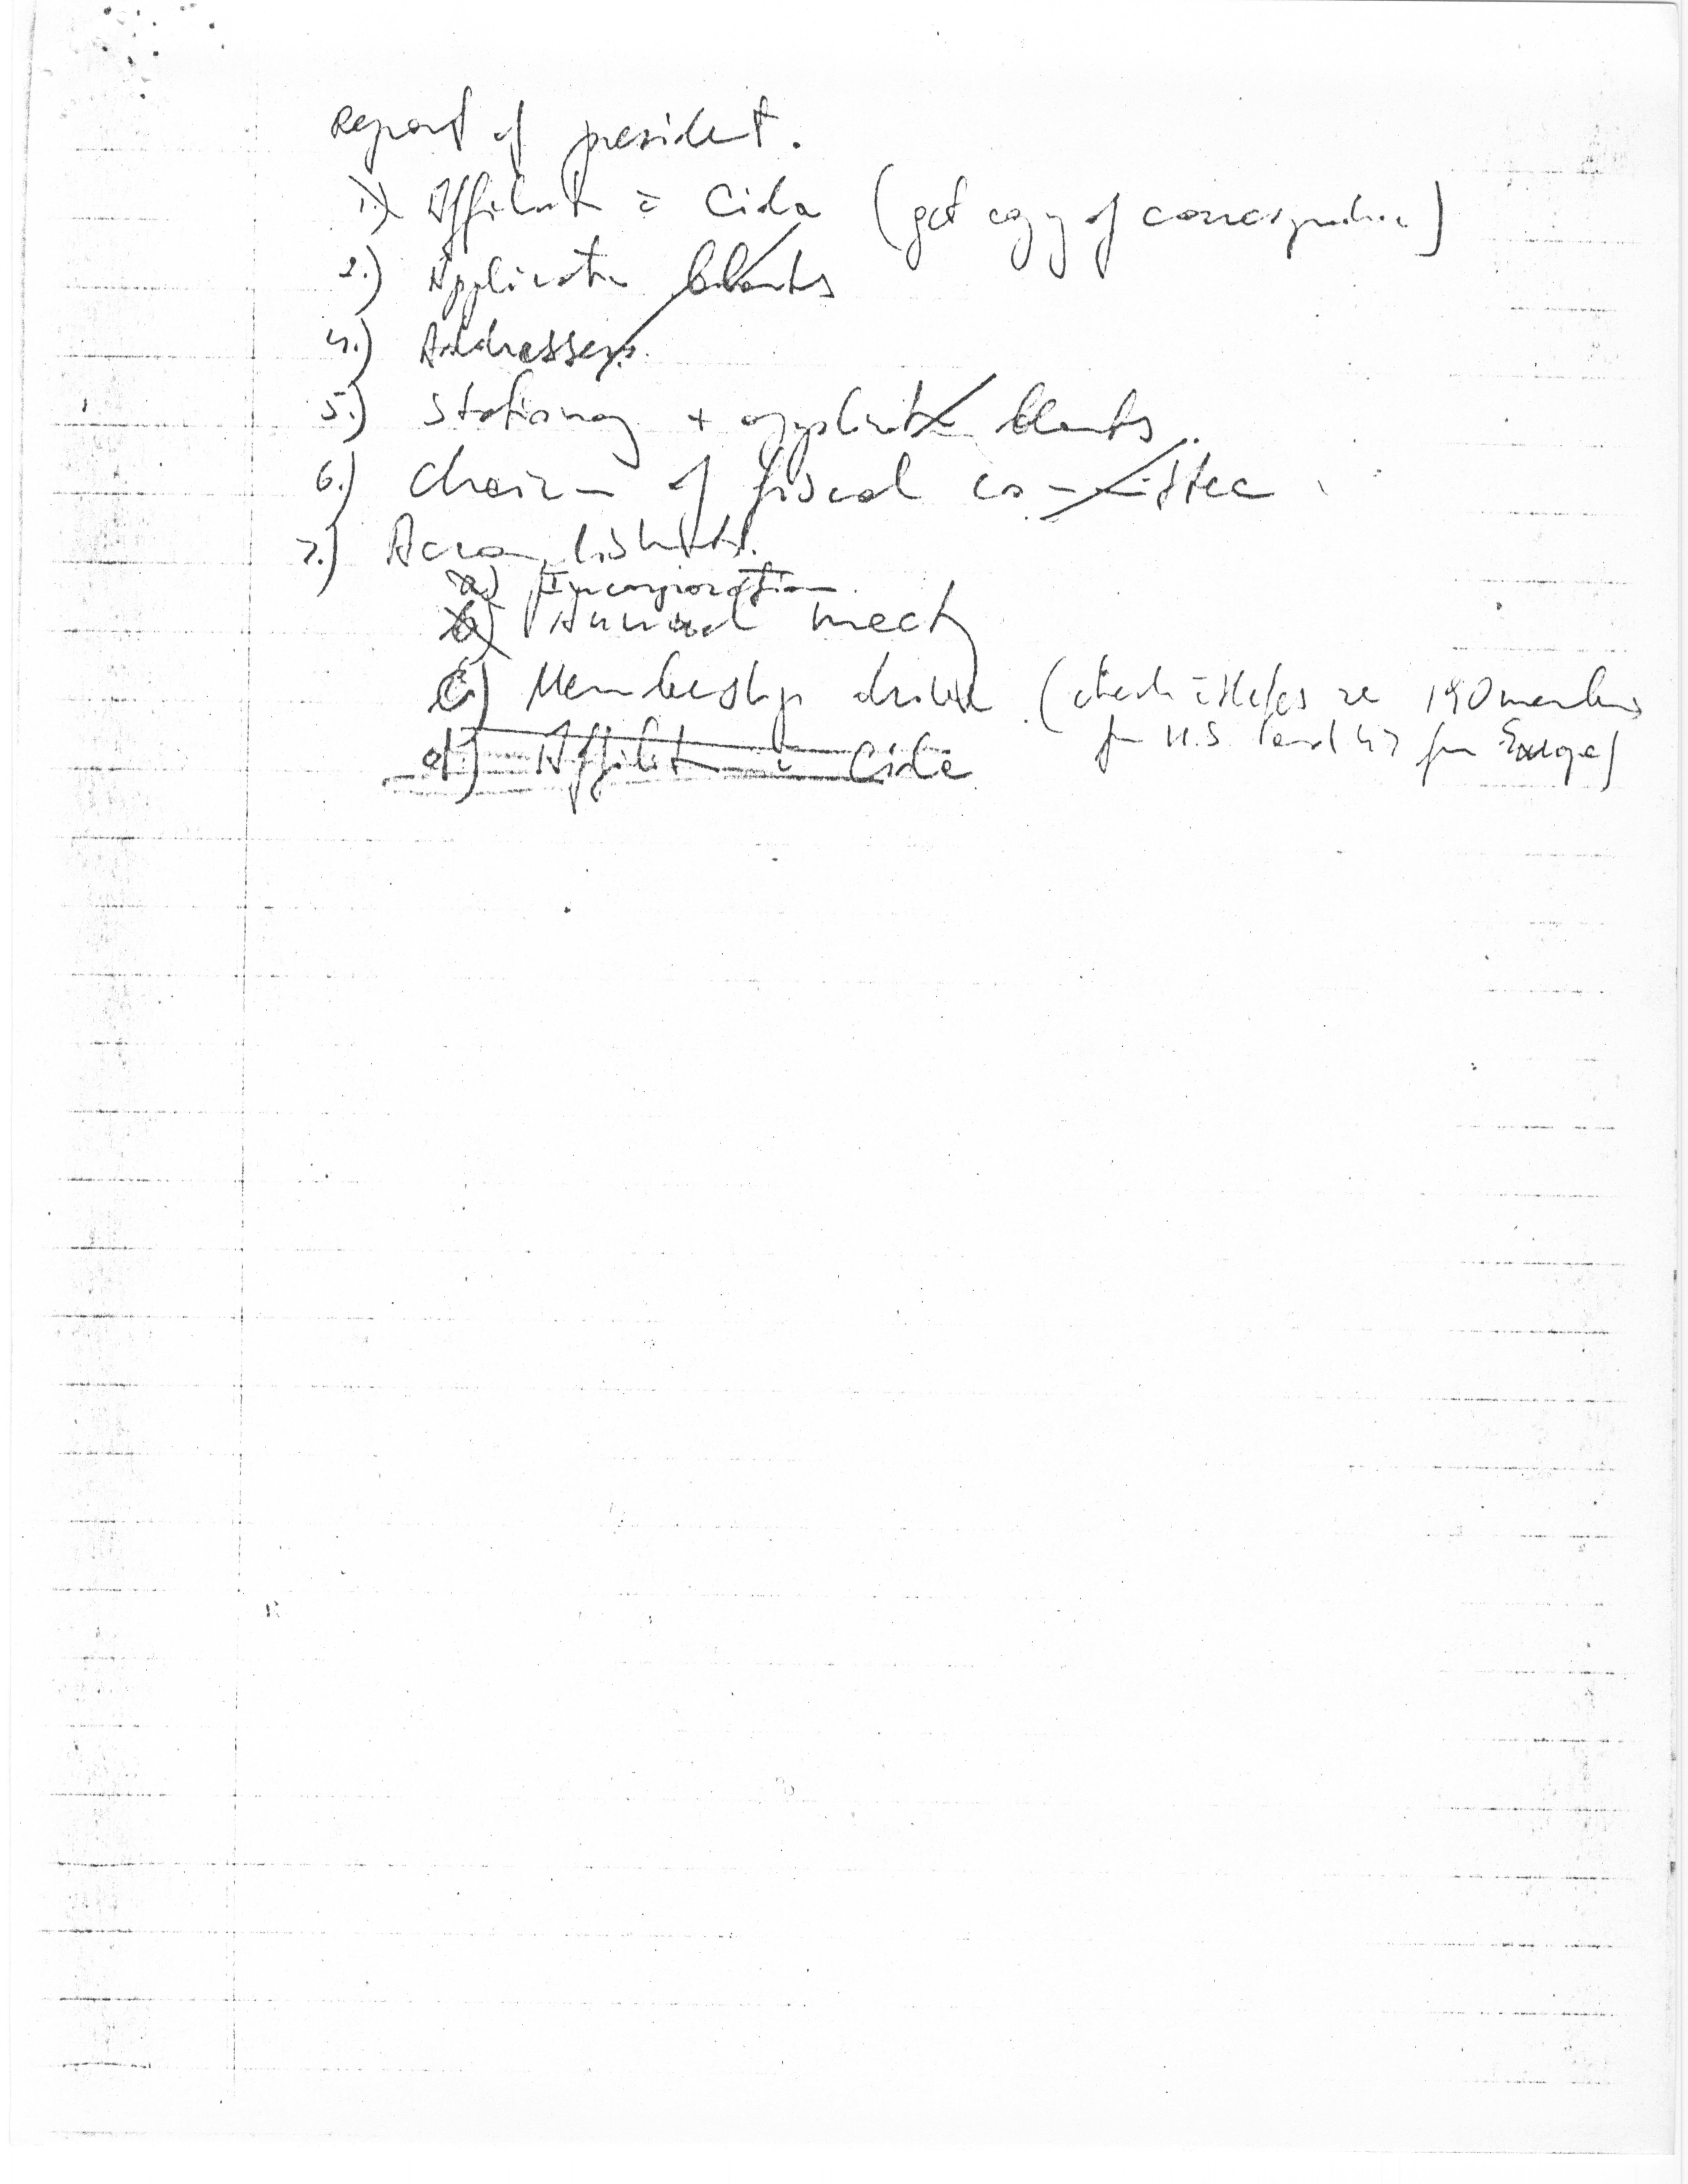 Report of president.
1.) Affiliat c̄ Cida (get copy of correspondence)
2.) Applicatn blanks
4.) Addresses.
5.) Stationary + applicatn blanks.
6.) Chairmn of fiscal committee.
7.) Accomplishments.
a) Incorporation
b) Annual meetg
c) Membership drive (check c̄ re 190 members
d) Affiliatn c̄ Cida
for U.S. and 47 for Europe)